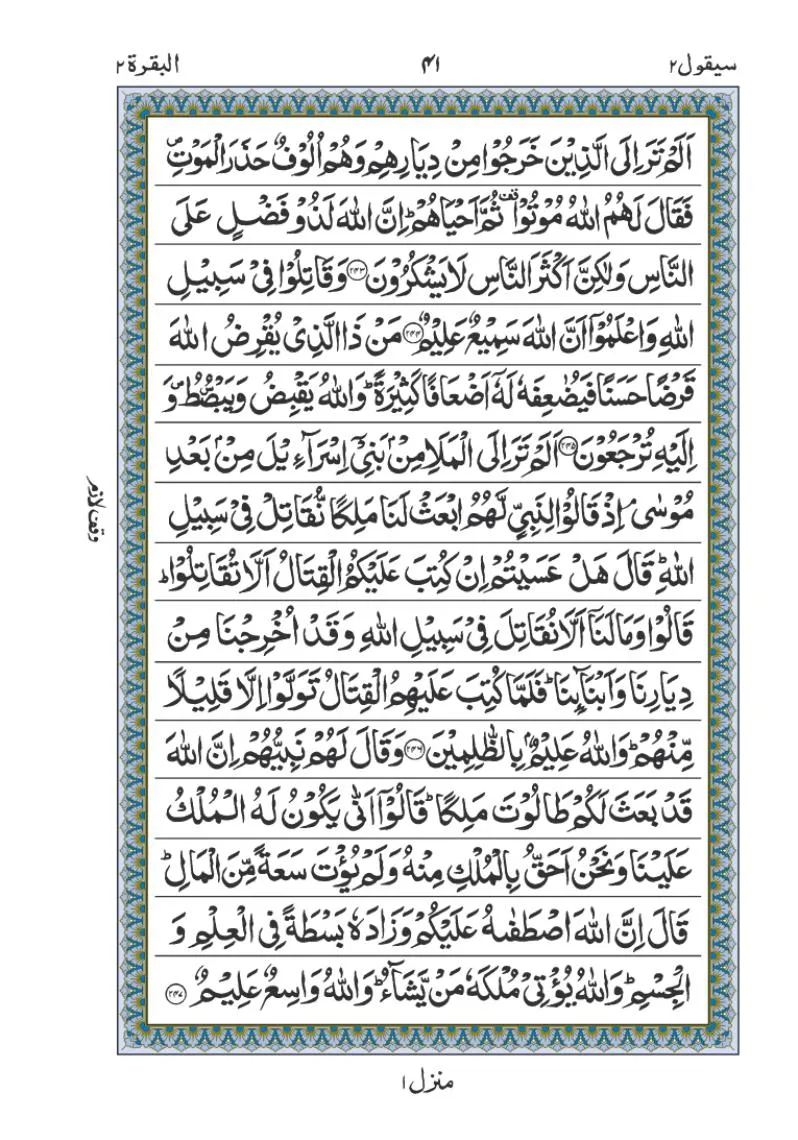 سيقول ٢ ٤١ البقرة ٢
اَلَمْ تَرَ اِلَى الَّذِيْنَ خَرَجُوْا مِنْ دِيَارِهِمْ وَهُمْ اُلُوْفٌ حَذَرَ الْمَوْتِ ۪
فَقَالَ لَهُمُ اللّٰهُ مُوْتُوْا ۫ ثُمَّ اَحْيَاهُمْ ؕ اِنَّ اللّٰهَ لَذُوْ فَضْلٍ عَلَى
النَّاسِ وَلٰكِنَّ اَكْثَرَ النَّاسِ لَا يَشْكُرُوْنَ ﴿۲۴۳﴾ وَقَاتِلُوْا فِيْ سَبِيْلِ
اللّٰهِ وَاعْلَمُوْۤا اَنَّ اللّٰهَ سَمِيْعٌ عَلِيْمٌ ﴿۲۴۴﴾ مَنْ ذَا الَّذِيْ يُقْرِضُ اللّٰهَ
قَرْضًا حَسَنًا فَيُضٰعِفَهٗ لَهٗۤ اَضْعَافًا كَثِيْرَةً ؕ وَاللّٰهُ يَقْبِضُ وَيَبْصُۜطُ ۪ وَ
اِلَيْهِ تُرْجَعُوْنَ ﴿۲۴۵﴾ اَلَمْ تَرَ اِلَى الْمَلَاِ مِنْۢ بَنِيْۤ اِسْرَآءِيْلَ مِنْۢ بَعْدِ
مُوْسٰى ۘ اِذْ قَالُوْا لِنَبِيٍّ لَّهُمُ ابْعَثْ لَنَا مَلِكًا نُّقَاتِلْ فِيْ سَبِيْلِ
وقف لازم
اللّٰهِ ؕ قَالَ هَلْ عَسَيْتُمْ اِنْ كُتِبَ عَلَيْكُمُ الْقِتَالُ اَلَّا تُقَاتِلُوْا ؕ
قَالُوْا وَمَا لَنَاۤ اَلَّا نُقَاتِلَ فِيْ سَبِيْلِ اللّٰهِ وَقَدْ اُخْرِجْنَا مِنْ
دِيَارِنَا وَاَبْنَآئِنَا ؕ فَلَمَّا كُتِبَ عَلَيْهِمُ الْقِتَالُ تَوَلَّوْا اِلَّا قَلِيْلًا
مِّنْهُمْ ؕ وَاللّٰهُ عَلِيْمٌۢ بِالظّٰلِمِيْنَ ﴿۲۴۶﴾ وَقَالَ لَهُمْ نَبِيُّهُمْ اِنَّ اللّٰهَ
قَدْ بَعَثَ لَكُمْ طَالُوْتَ مَلِكًا ؕ قَالُوْۤا اَنّٰى يَكُوْنُ لَهُ الْمُلْكُ
عَلَيْنَا وَنَحْنُ اَحَقُّ بِالْمُلْكِ مِنْهُ وَلَمْ يُؤْتَ سَعَةً مِّنَ الْمَالِ ؕ
قَالَ اِنَّ اللّٰهَ اصْطَفٰىهُ عَلَيْكُمْ وَزَادَهٗ بَسْطَةً فِي الْعِلْمِ وَ
الْجِسْمِ ؕ وَاللّٰهُ يُؤْتِيْ مُلْكَهٗ مَنْ يَّشَآءُ ؕ وَاللّٰهُ وَاسِعٌ عَلِيْمٌ ﴿۲۴۷﴾
منزل ١